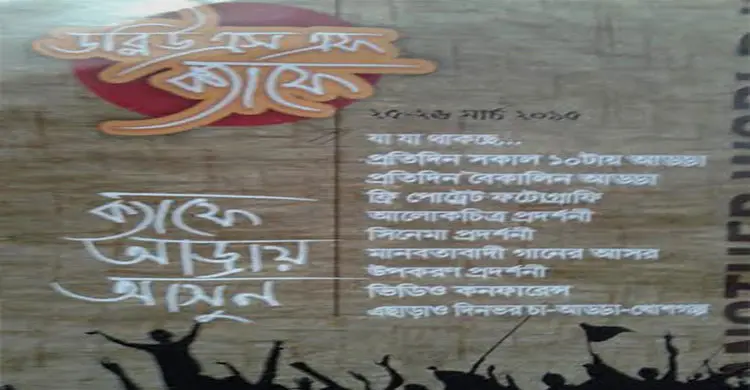 ডব্লিউ এস এফ
ক্যাফে
২৫-২৬ মার্চ ২০১৫
যা যা থাকছে...
প্রতিদিন সকাল ১০টায় আড্ডা
প্রতিদিন বৈকালিন আড্ডা
ফ্রি পোর্ট্রেট ফটোগ্রাফি
আলোকচিত্র প্রদর্শনী
সিনেমা প্রদর্শনী
মানবতাবাদী গানের আসর
উপকরণ প্রদর্শনী
ভিডিও কনফারেন্স
এছাড়াও দিনভর চা-আড্ডা-খোশগল্প
ক্যাফে
আড্ডায়
আসুন
NOTHER WORLD